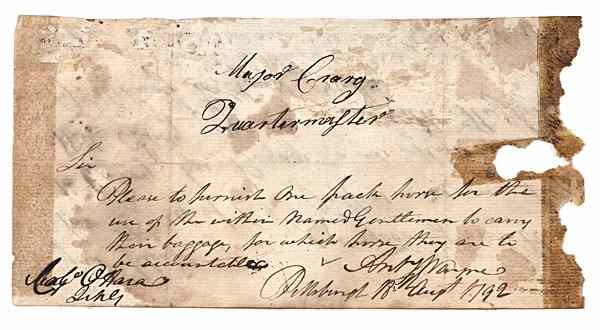 Major Craig
Quartermaster
Sir
Please to furnish One pack horse for the
use of the within Named Gentlemen to carry
their baggage, for which horse they are to
be accountable
Anty Wayne
O'Hara
Pittsburgh 18th Augt 1792